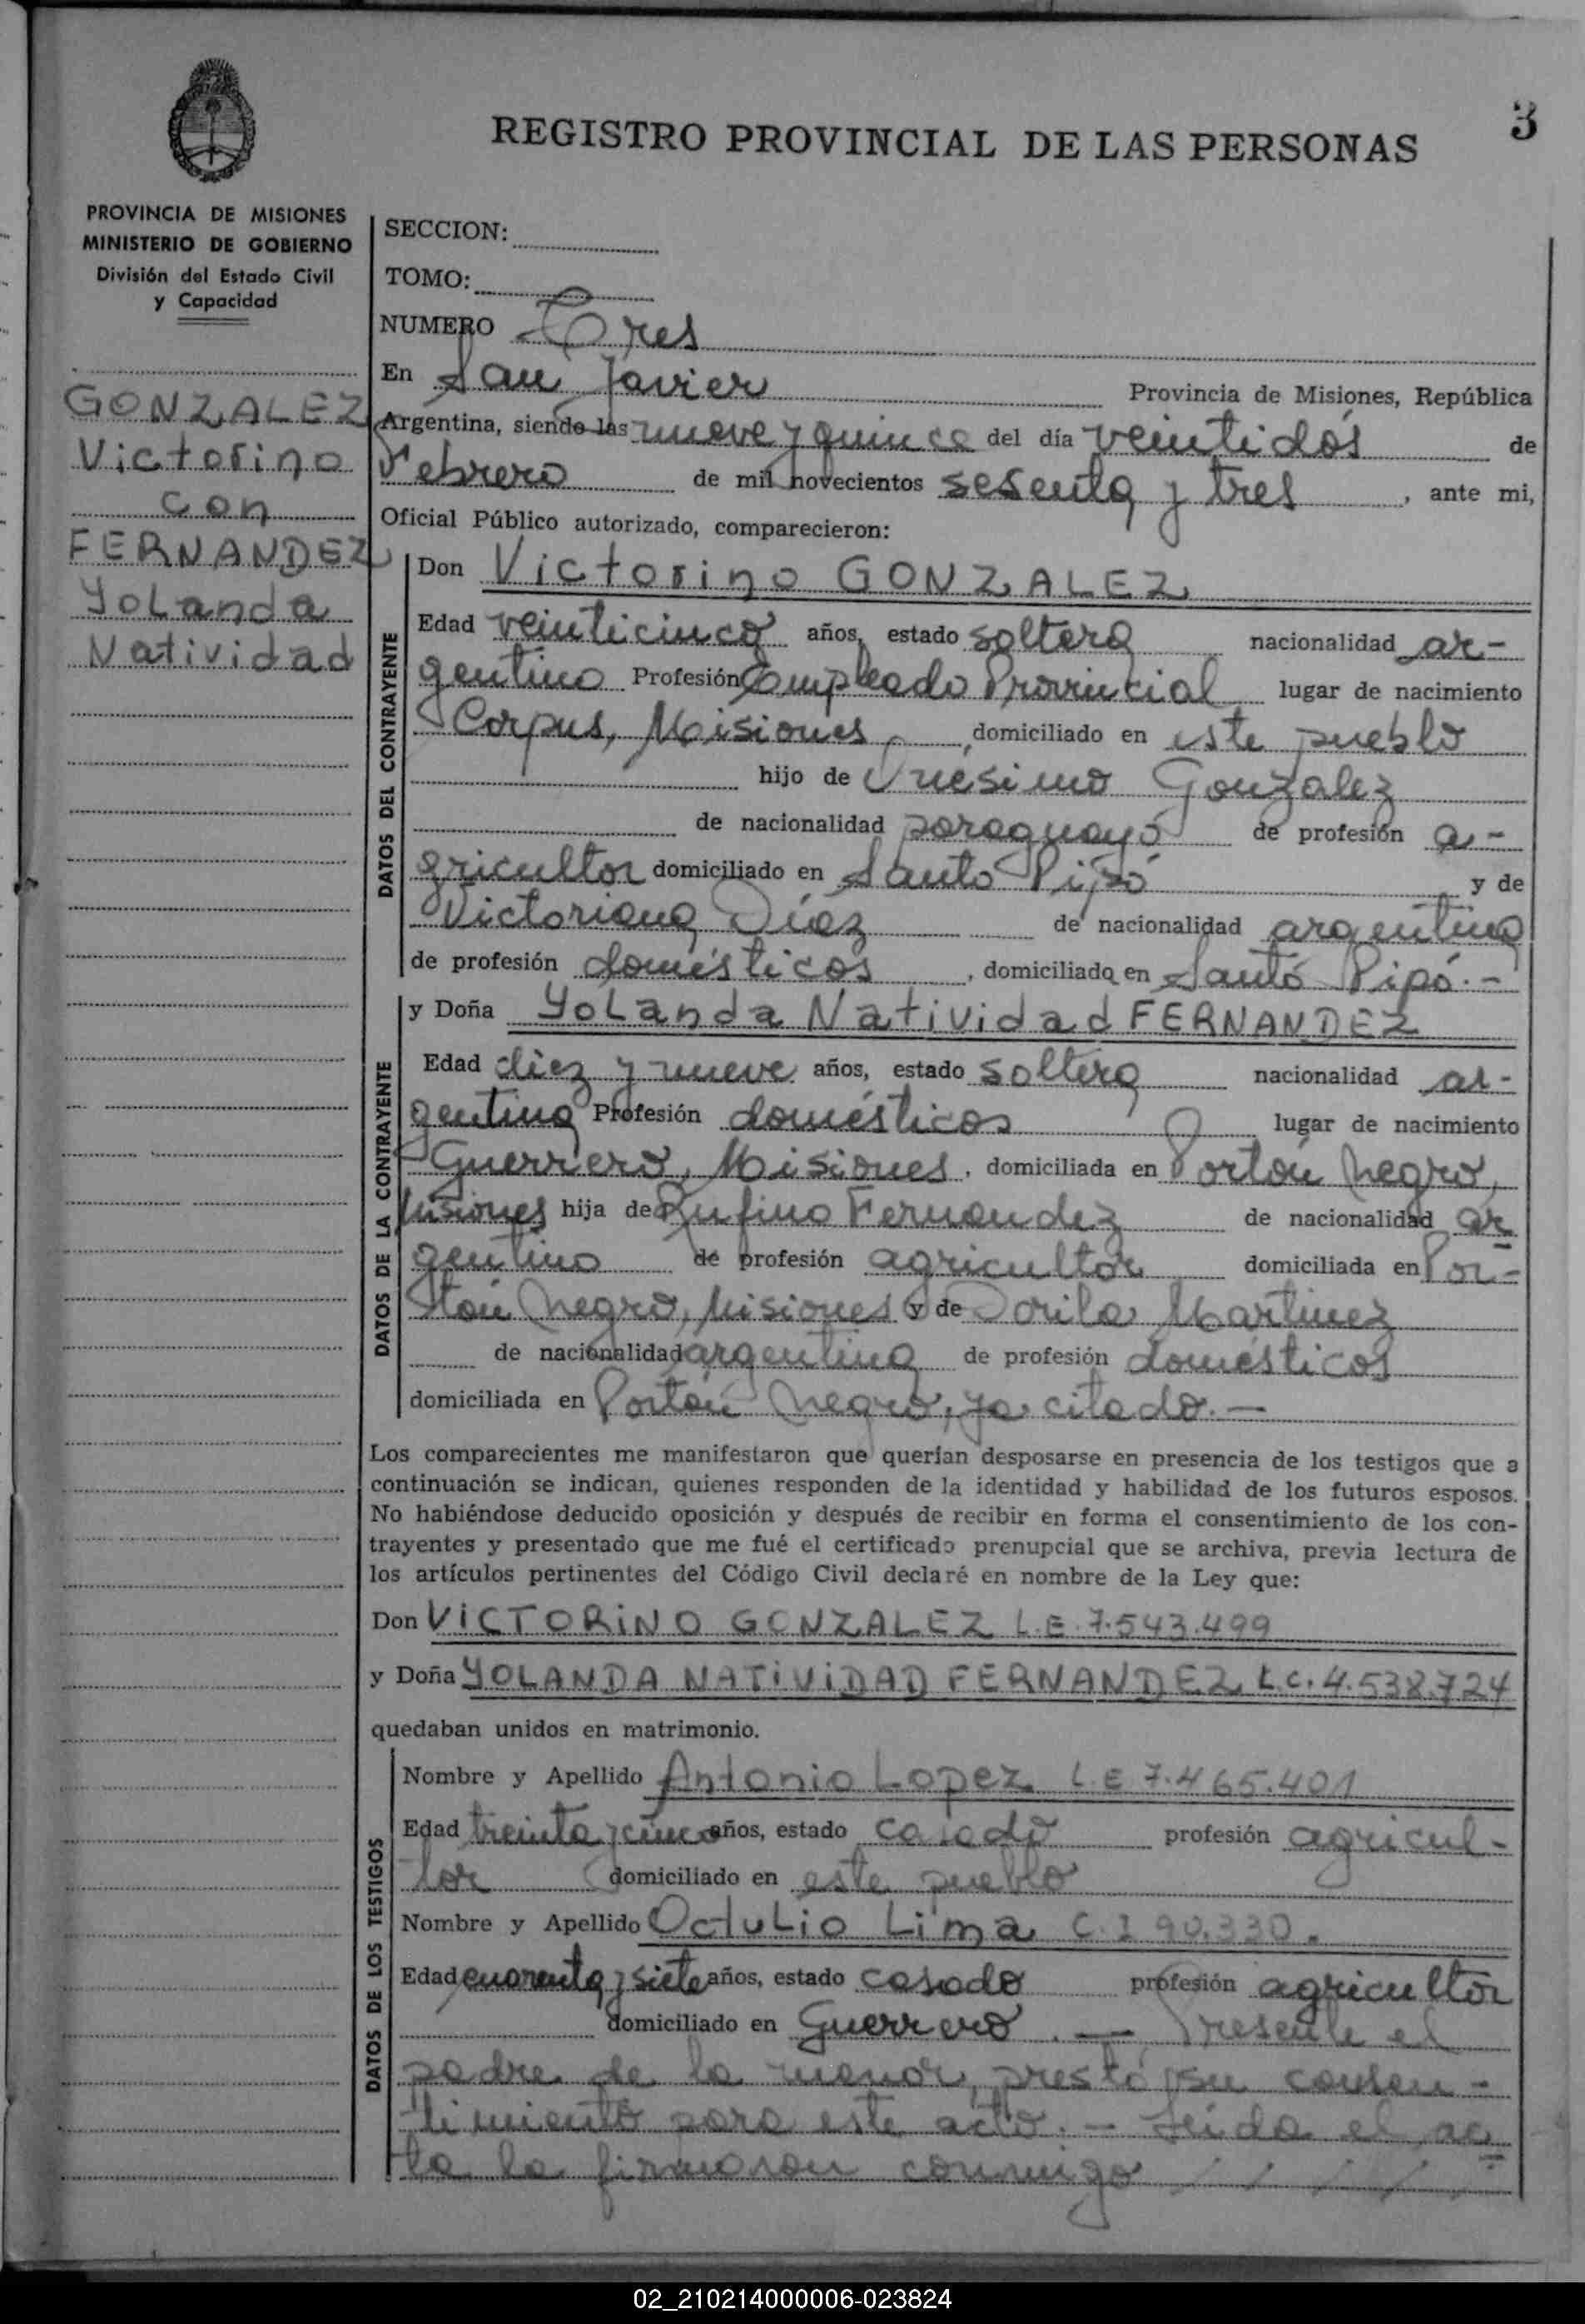 3
REGISTRO PROVINCIAL DE LAS PERSONAS
PROVINCIA DE MISIONES
MINISTERIO DE GOBIERNO
División del Estado Civil
y Capacidad
GONZALEZ
Victorino
con
FERNANDEZ
Yolanda
Natividad
SECCION:
TOMO:
NUMERO Tres
En San Javier Provincia de Misiones, República
Argentina, siendo las nueve y quince del día veintidós de
Febrero de mil novecientos sesenta y tres, ante mi,
Oficial Público autorizado, comparecieron:
DATOS DEL CONTRAYENTE
Don Victorino GONZALEZ
Edad veinticinco años, estado soltero nacionalidad ar-
gentino Profesión Empleado Provincial lugar de nacimiento
Corpus, Misiones, domiciliado en este pueblo
hijo de Onésimo Gonzalez
de nacionalidad paraguayo de profesión a-
gricultor domiciliado en Santo Pipó y de
Victoriana Díez de nacionalidad argentina
de profesión domésticos, domiciliada en Santo Pipó.-
DATOS DE LA CONTRAYENTE
y Doña Yolanda Natividad FERNANDEZ
Edad diez y nueve años, estado soltera nacionalidad ar-
gentina Profesión domésticos lugar de nacimiento
Guerrero, Misiones, domiciliada en Portón Negro,
Misiones hija de Rufino Fernandez de nacionalidad ar
gentino de profesión agricultor domiciliada en Por-
tón Negro, Misiones y de Dorila Martinez
de nacionalidad argentina de profesión domésticos
domiciliada en Portón Negro, ya citado.-
Los comparecientes me manifestaron que querían desposarse en presencia de los testigos que a
continuación se indican, quienes responden de la identidad y habilidad de los futuros esposos.
No habiéndose deducido oposición y después de recibir en forma el consentimiento de los con-
trayentes y presentado que me fué el certificado prenupcial que se archiva, previa lectura de
los artículos pertinentes del Código Civil declaré en nombre de la Ley que:
Don VICTORINO GONZALEZ L.E. 7.543.499
y Doña YOLANDA NATIVIDAD FERNANDEZ L.C. 4.538.724
quedaban unidos en matrimonio.
DATOS DE LOS TESTIGOS
Nombre y Apellido Antonio Lopez L.E 7.465.401
Edad treinta y cinco años, estado casado profesión agricul-
tor domiciliado en este pueblo
Nombre y Apellido Octulio Lima C.I 90.330.
Edad cuarenta y siete años, estado casado profesión agricultor
domiciliado en Guerrero.- Presente el
padre de la menor, prestó su consen-
timiento para este acto.- Leida el ac
ta la firmaron conmigo / / / / /
02_210214000006-023824